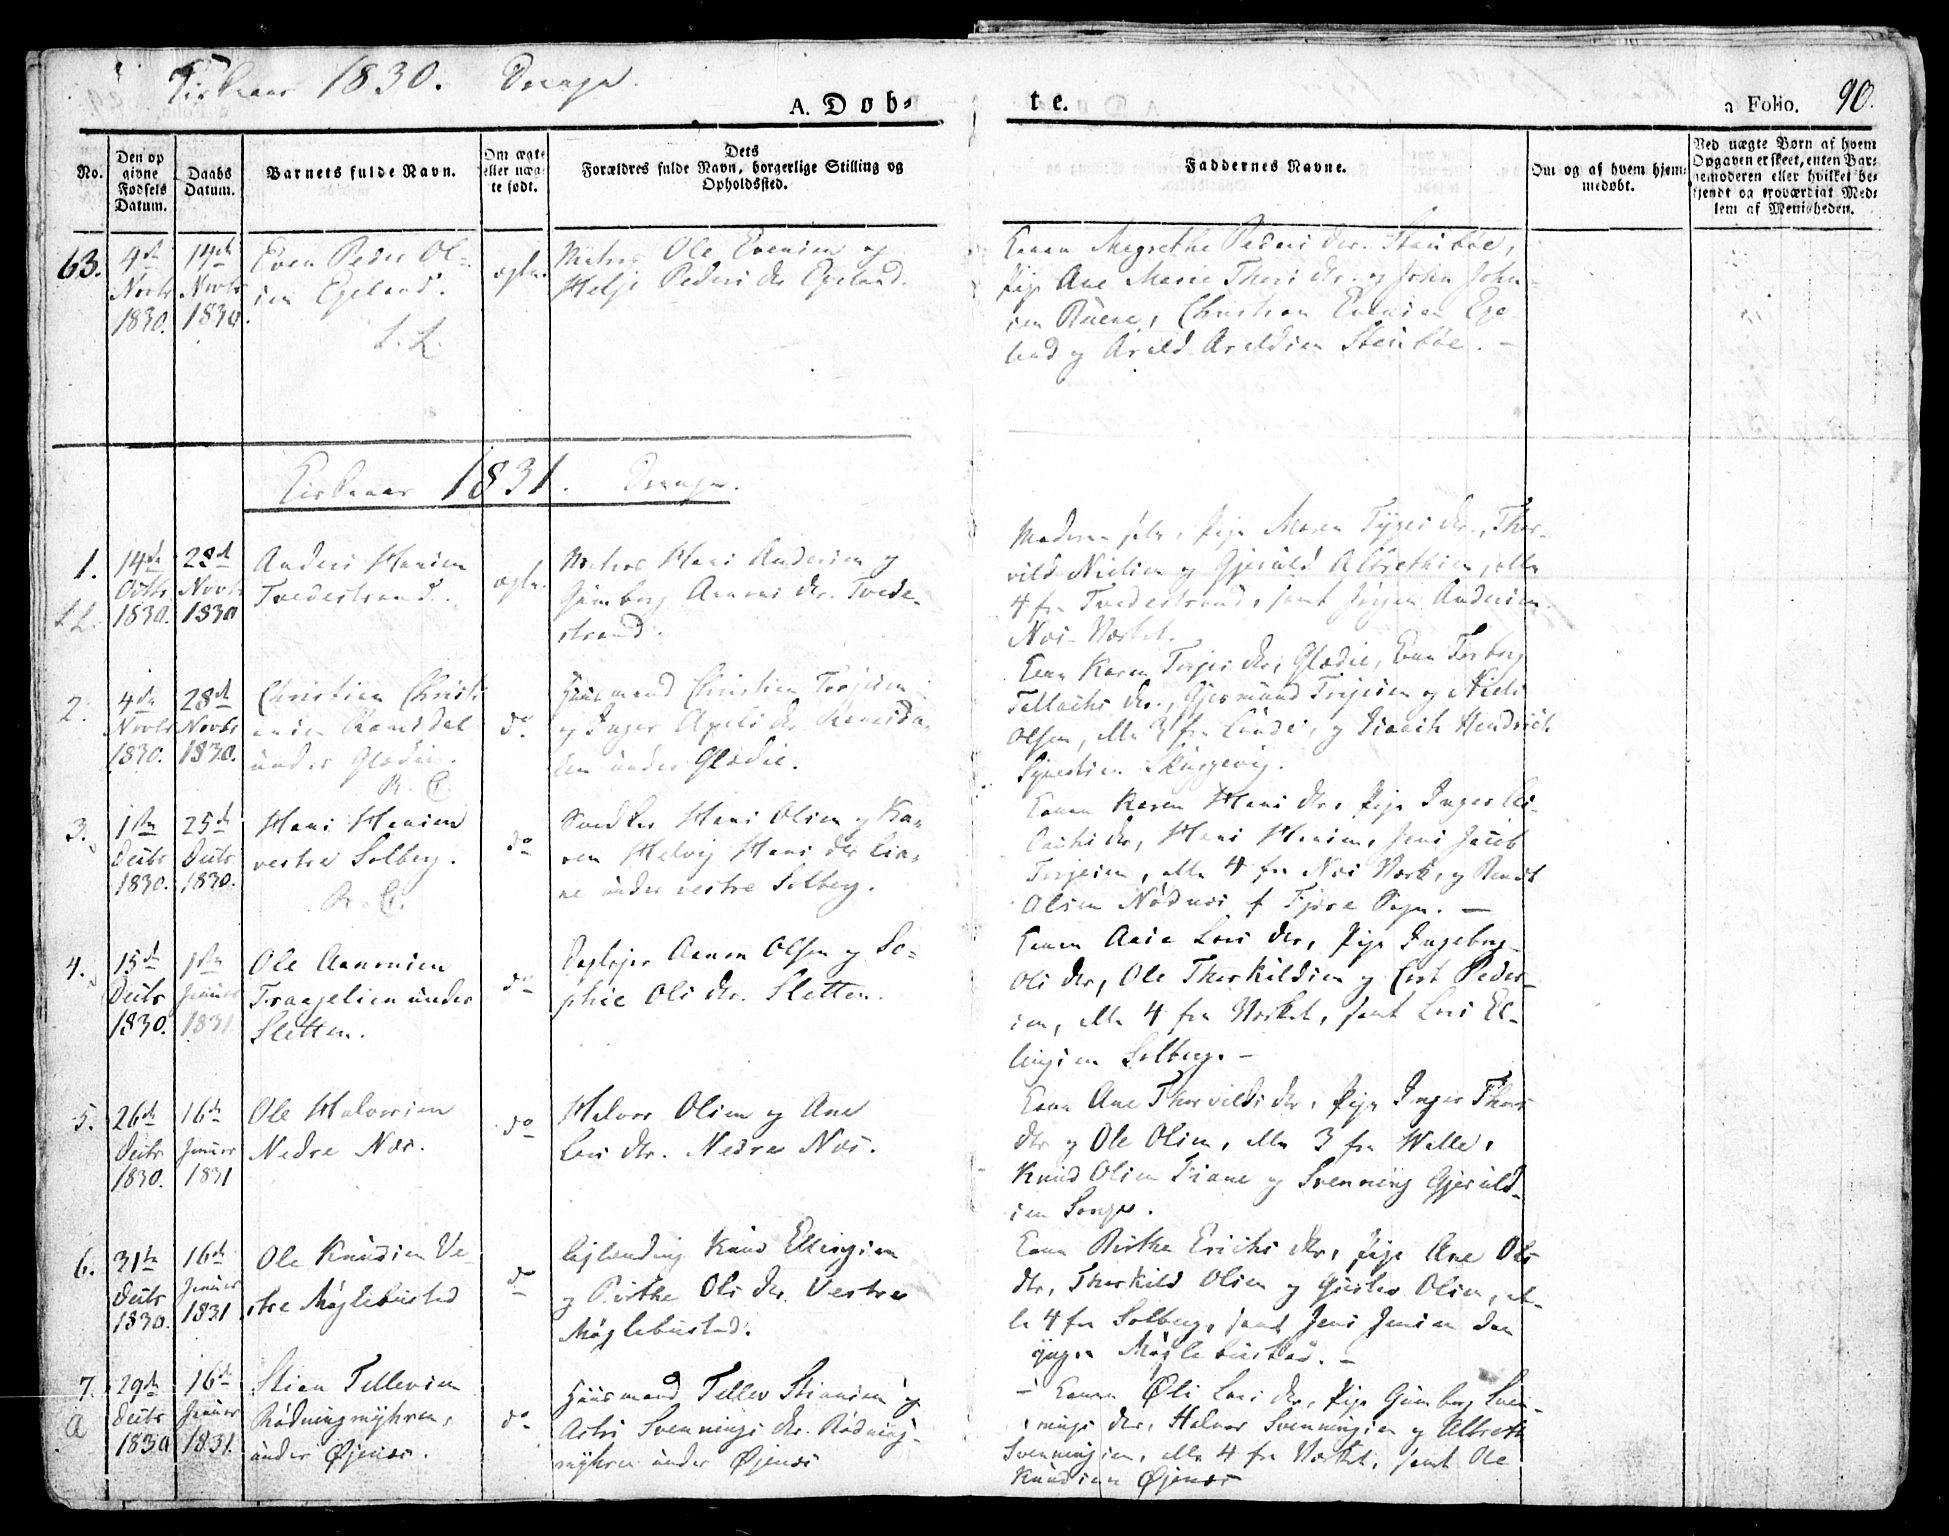 Kirkeaar 1830. Drenge
A. Døb-
te.
a Folio. 90.
No.
Den op
givne
Fødsels
Datum.
Daabs
Datum.
Barnets fulde Navn.
Om ægte
eller uæg-
te født.
Dets
Forældres fulde Navn, borgerlige Stilling og
Opholdssted.
Faddernes Navne.
Om og af hvem hjem-
medøbt.
Ved uægte Børn af hvem
Opgaven er skeet, enten Bar-
nemoderen eller hvilket be-
kjendt og troværdigt Med-
lem af Menigheden.
63.
4de
Novbr
1830.
14de
Novbr
1830.
Even Peder Ol-
sen Egeland.
L. L.
ægte.
Matros Ole Evensen og
Helje Peders dtr Egeland.
Konen Megrethe Peders dtr. Steinbøe,
Pige Ane Marie Thers dtr. og John John-
sen Buene, Christian Evensen Ege-
land og Arild Arildsen Steinbøe. -
Kirkeaar 1831. Drenge.
1.
L L.
14de
Octbr
1830.
28de
Novbr
1830
Anders Hansen
Tvedestrand.
ægte.
Matros Hans Andersen og
Gunborg Aanons dtr. Tvede-
strand.
Moderen selv, Pige Maren Tyges dtr., Thor-
vild Nielsen og Gjeruld Albretsen, alle
4 fra Tvedestrand, samt Jørgen Andersen
Næs-Værket.
2.
4de
Novbr
1830.
28de
Novbr
1830.
Christian Christi-
ansen Ramsdal
under Glødie.
R. C.
do.
Huusmand Christian Terjesen
og Inger Axels dtr Ramsda-
len under Glødie.
Kone Karen Terjes dtr, Glødie, Kone Torborg
Tellachs dtr., Gjermund Terjesen og Niels
Olsen, alle 3 fra Lunde, og Isaach Hendrich
Syvertsen Skuggevig.
3.
1ste
Decbr
1830.
25de
Decbr
1830.
Hans Hansen
vestre Solberg.
R. C.
do
Snedker Hans Olsen og Ka-
ren Helvig Hans dtr Lia-
ne under vestre Solberg.
Konen Karen Hans dtr, Pige Inger
dtr, Hans Hansen, Jens Jacob
Terjesen, alle 4 fra Næs Værk, og
Olsen Nødnæs af Fjære Sogn. -
4.
15de
Decbr
1830.
1ste
Januar
1831
Ole Aanonsen
Traagelien under
Sletten.
do
Dagleier Aanon Olsen og So-
phie Ols dtr. Sletten.
Konen Aase Lars dtr, Pige Ingeborg
Ols dtr, Ole Thorkildsen og Lort Peder-
sen, alle 4 fra Værket, samt Lars El-
lingsen Solberg. -
5.
26de
Decbr
1830.
16de
Januar
1831
Ole Halvorsen
Nedre Næs.
do
Halvor Olsen og Ane
Lars dtr. Nedre Næs.
Kone Ane Thorvilds dtr, Pige Inger Thors
dtr og Ole Olsen, alle 3 fra Walle,
Knud Olsen Fiane og Svenning Gjeruld-
sen Songe.
6.
31te
Decbr
1830.
16de
Januar
1831
Ole Knudsen Ve-
stre Møglebustad
do
Leilænding Knud Ellingsen
og Birthe Ols dtr Vestre
Møglebustad.
Kone Birthe Erichs dtr, Pige Ane Ols
dtr, Thorkild Olsen og Gustav Olsen, al-
le 4 fra Solberg, samt Jens Jensen den
yngre Møglebustad. -
7.
a
29de
Decbr
1830
16de
Januar
1831.
Stian Tellevsen
Rødningmyhren,
under Øjenæs.
do
Huusmand Tellev Stiansen og
Aslou Svennings dtr. Rødning-
myhren under Øjenæs
- Konen Øli Lars dtr, Pige Gunborg Sven-
nings dtr, Halvor Svenningsen og Albreth
Svenningsen, alle 4 fra Værket, samt Ole
Knudsen Øjenæs